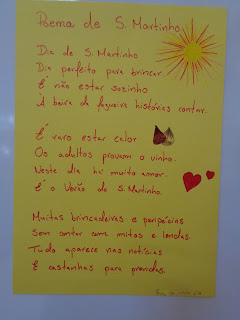 Poema de S. Martinho
Dia de S. Martinho
Dia perfeito para brincar
É não estar sozinho
À beira da fogueira histórias contar.
É raro estar calor
Os adultos provam o vinho.
Neste dia há muito amor.
É o Verão de S. Martinho.
Muitas brincadeiras e peripécias
Sem contar com mitos e lendas.
Tudo aparece nas notícias
E castanhas para prendas.